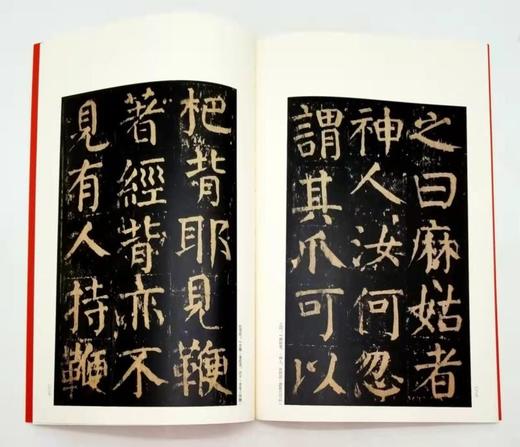 之曰麻姑者
神人汝何忽
謂其爪可以
杷背耶見鞭
著經背亦不
見有人持鞭